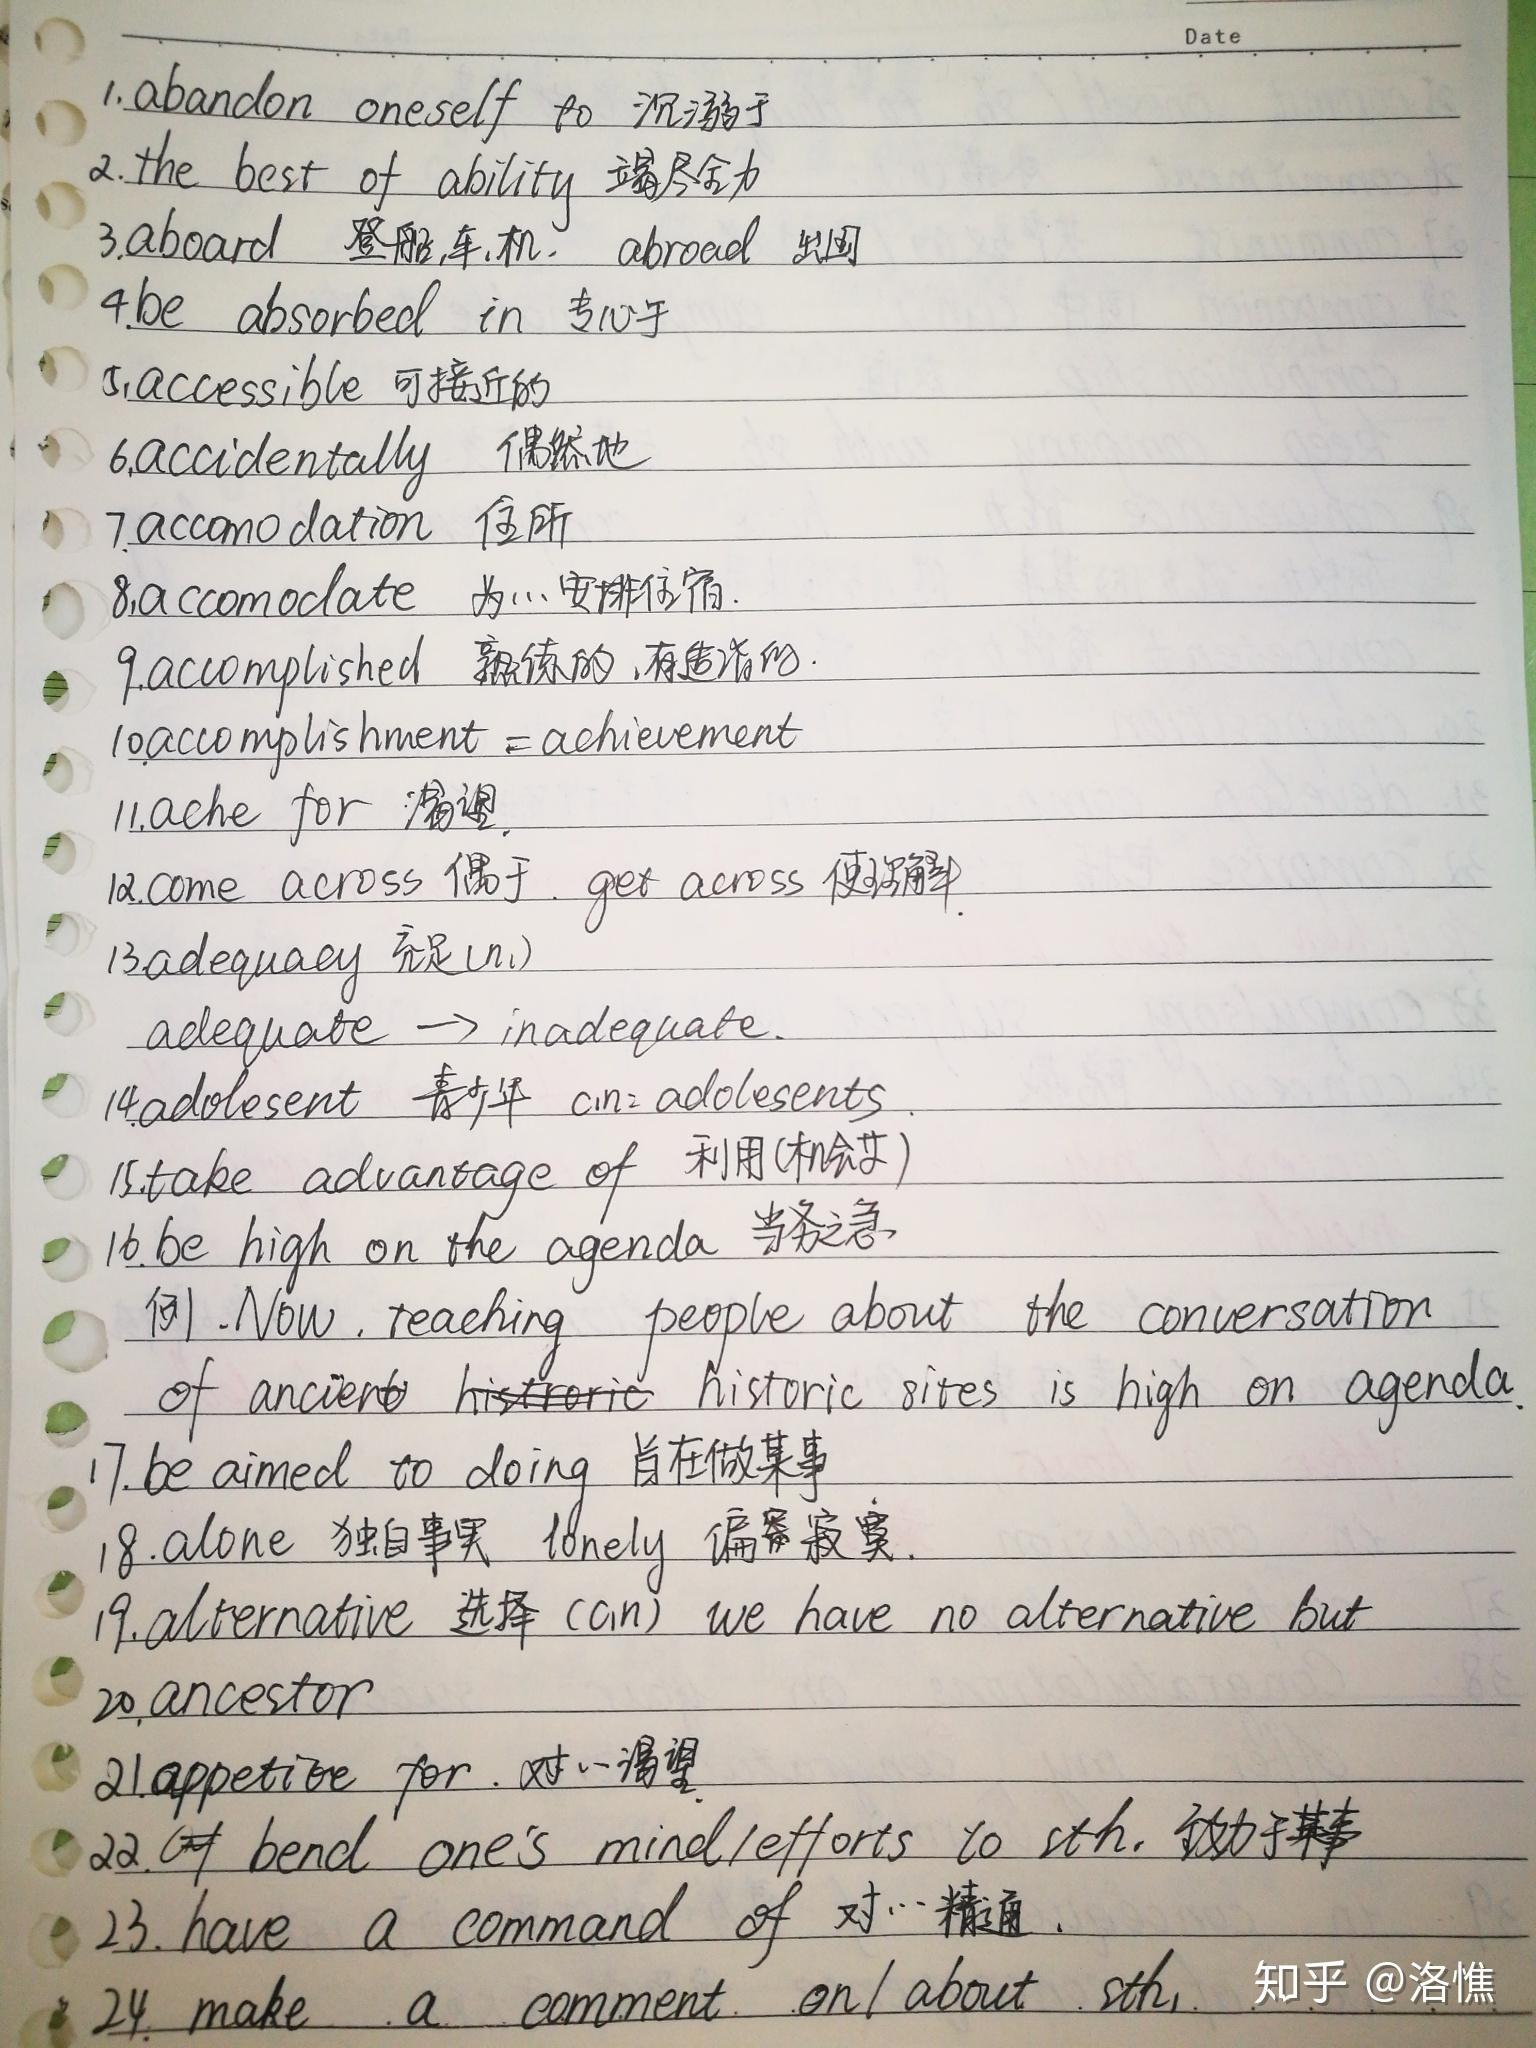 Date
1.abandon oneself to 沉溺于
2.the best of ability 竭尽全力
3.aboard 登船,车,机. abroad 出国
4.be absorbed in 专心于
5.accessible 可接近的
6.accidentally 偶然地
7.accomodation 住所
8.accomodate 为...安排住宿.
9.accomplished 熟练的,有造诣的.
10.accomplishment = achievement
11.ache for 渴望.
12.come across 偶于. get across 使理解.
13.adequacy 充足(n.)
adequate → inadequate.
14.adolesent 青少年 c.n= adolesents.
15.take advantage of 利用(机会等)
16.be high on the agenda 当务之急
例.Now, teaching people about the conversation
of ancient histroric historic sites is high on agenda.
17.be aimed to doing 旨在做某事
18.alone 独自事实 lonely 偏 寂寞.
19.alternative 选择 (c,n) we have no alternative but
20.ancestor
21.appetite for. 对...渴望.
22. bend one's mind/efforts to sth. 致力于某事
23.have a command of 对...精通.
24. make a comment on/about sth.
知乎 @洛憔